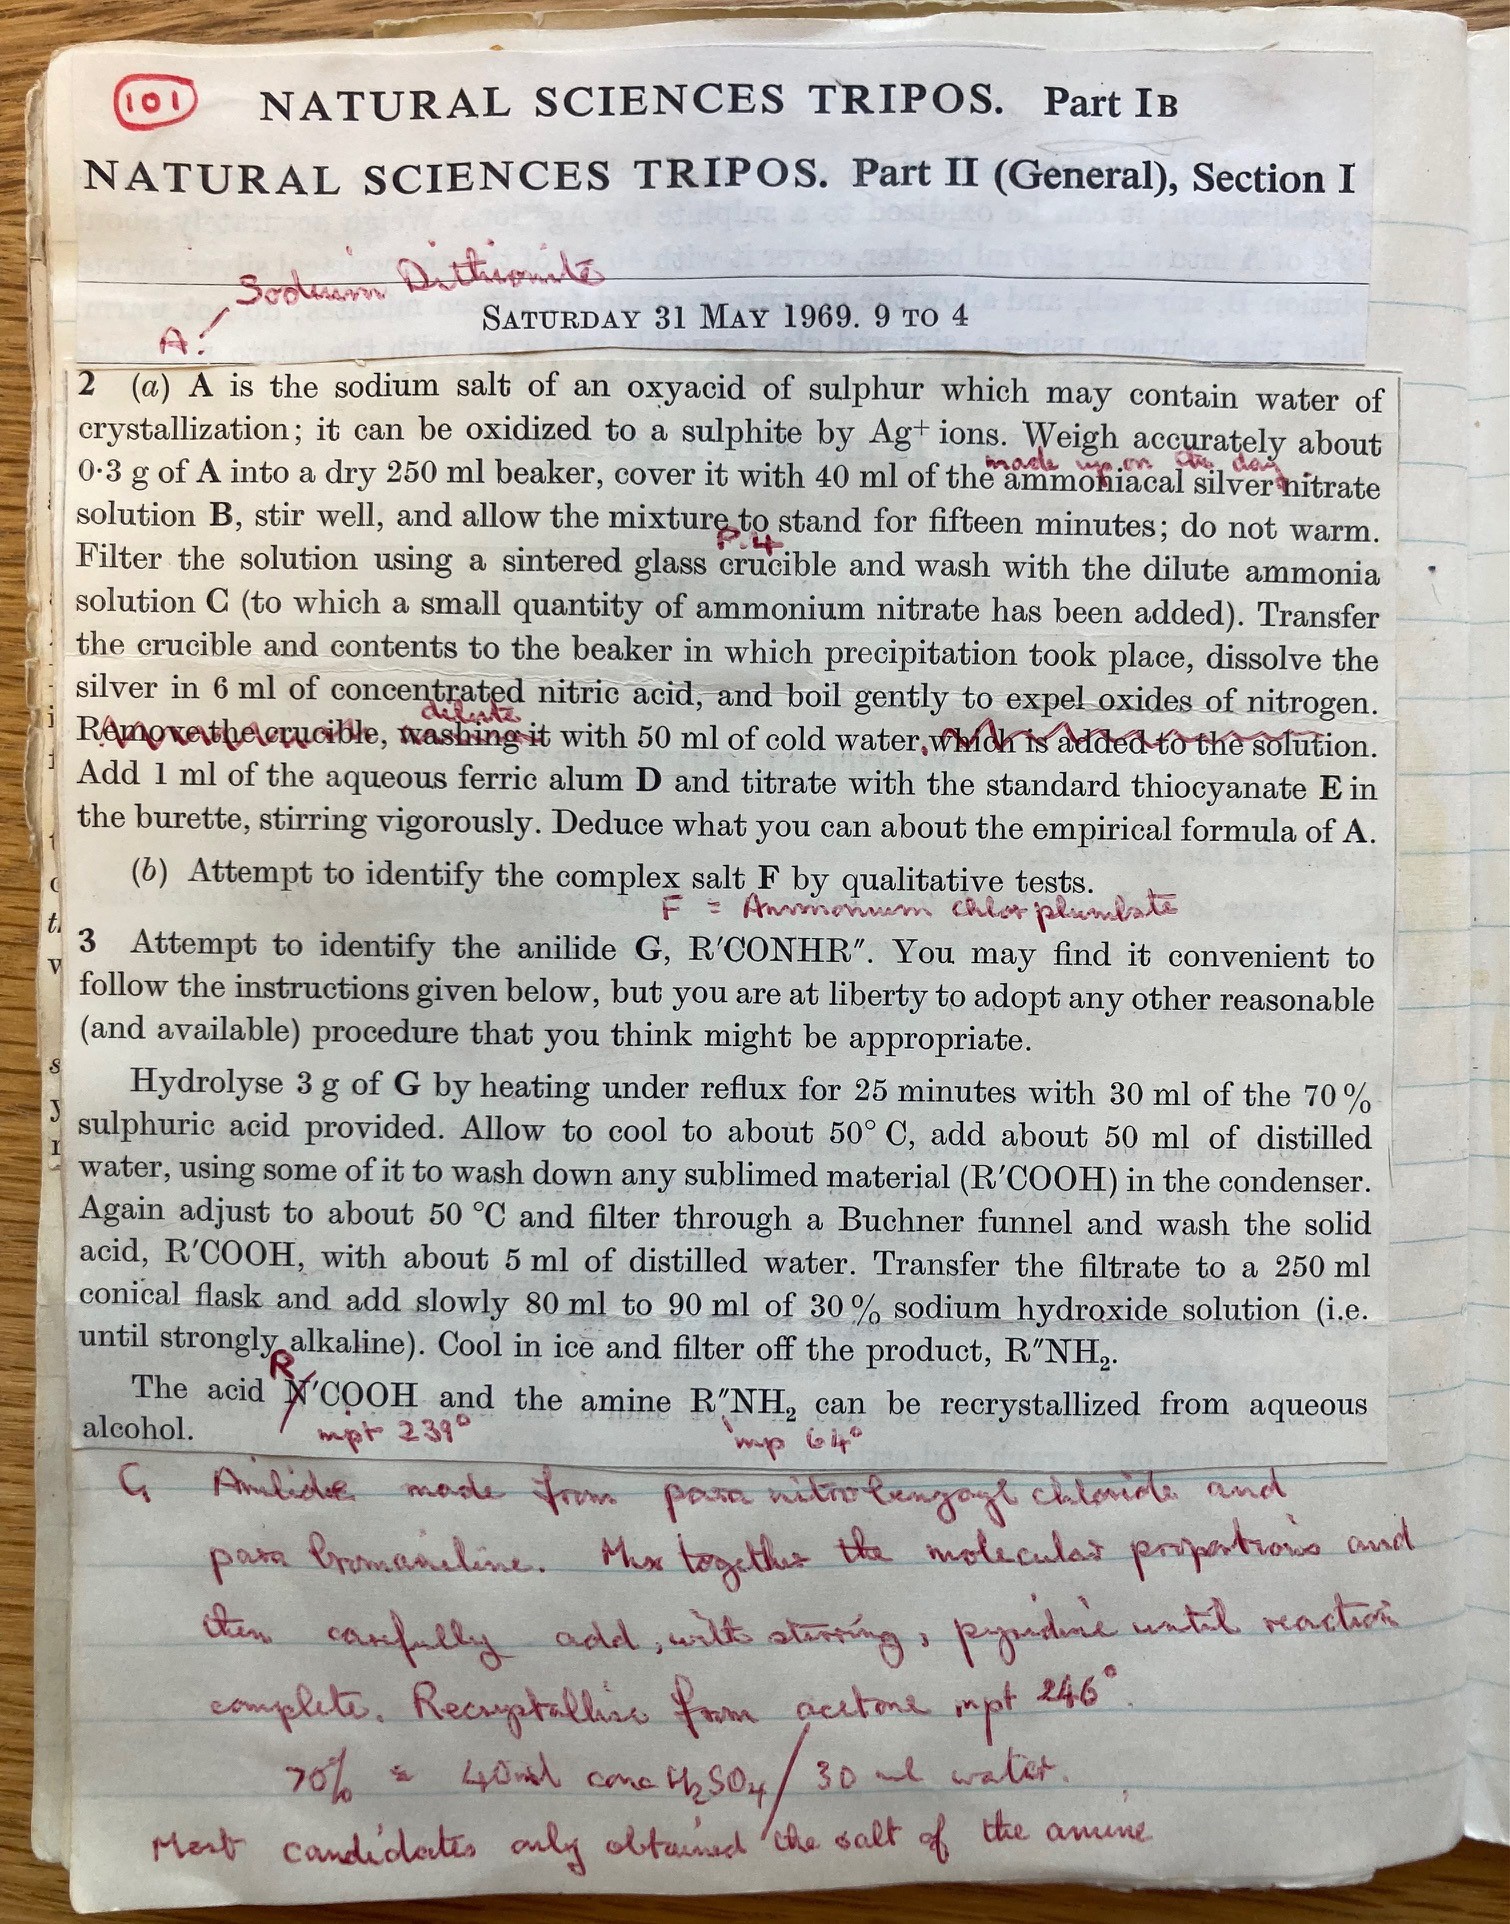 101
NATURAL SCIENCES TRIPOS. Part IB
NATURAL SCIENCES TRIPOS. Part II (General), Section I
Sodium Dithionite
A:
SATURDAY 31 MAY 1969. 9 TO 4
2 (a) A is the sodium salt of an oxyacid of sulphur which may contain water of
crystallization; it can be oxidized to a sulphite by Ag+ ions. Weigh accurately about
0·3 g of A into a dry 250 ml beaker, cover it with 40 ml of the ammoniacal silver nitrate
made up on the day
solution B, stir well, and allow the mixture to stand for fifteen minutes; do not warm.
P.4
Filter the solution using a sintered glass crucible and wash with the dilute ammonia
solution C (to which a small quantity of ammonium nitrate has been added). Transfer
the crucible and contents to the beaker in which precipitation took place, dissolve the
silver in 6 ml of concentrated nitric acid, and boil gently to expel oxides of nitrogen.
dilute
Remove the crucible, washing it with 50 ml of cold water, which is added to the solution.
Add 1 ml of the aqueous ferric alum D and titrate with the standard thiocyanate E in
the burette, stirring vigorously. Deduce what you can about the empirical formula of A.
(b) Attempt to identify the complex salt F by qualitative tests.
F = Ammonium chlorplumbate
3 Attempt to identify the anilide G, R′CONHR″. You may find it convenient to
follow the instructions given below, but you are at liberty to adopt any other reasonable
(and available) procedure that you think might be appropriate.
Hydrolyse 3 g of G by heating under reflux for 25 minutes with 30 ml of the 70%
sulphuric acid provided. Allow to cool to about 50° C, add about 50 ml of distilled
water, using some of it to wash down any sublimed material (R′COOH) in the condenser.
Again adjust to about 50 °C and filter through a Buchner funnel and wash the solid
acid, R′COOH, with about 5 ml of distilled water. Transfer the filtrate to a 250 ml
conical flask and add slowly 80 ml to 90 ml of 30% sodium hydroxide solution (i.e.
until strongly alkaline). Cool in ice and filter off the product, R″NH₂.
R
The acid N′COOH and the amine R″NH₂ can be recrystallized from aqueous
alcohol.
mpt 239° mp 64°
G Anilide made from para nitrobenzoyl chloride and
para bromaniline. Mix together the molecular proportions and
then carefully add, with stirring, pyridine until reaction
complete. Recrystallise from acetone mpt 246°.
70% = 40ml conc H₂SO₄ / 30 ml water.
Most candidates only obtained the salt of the amine